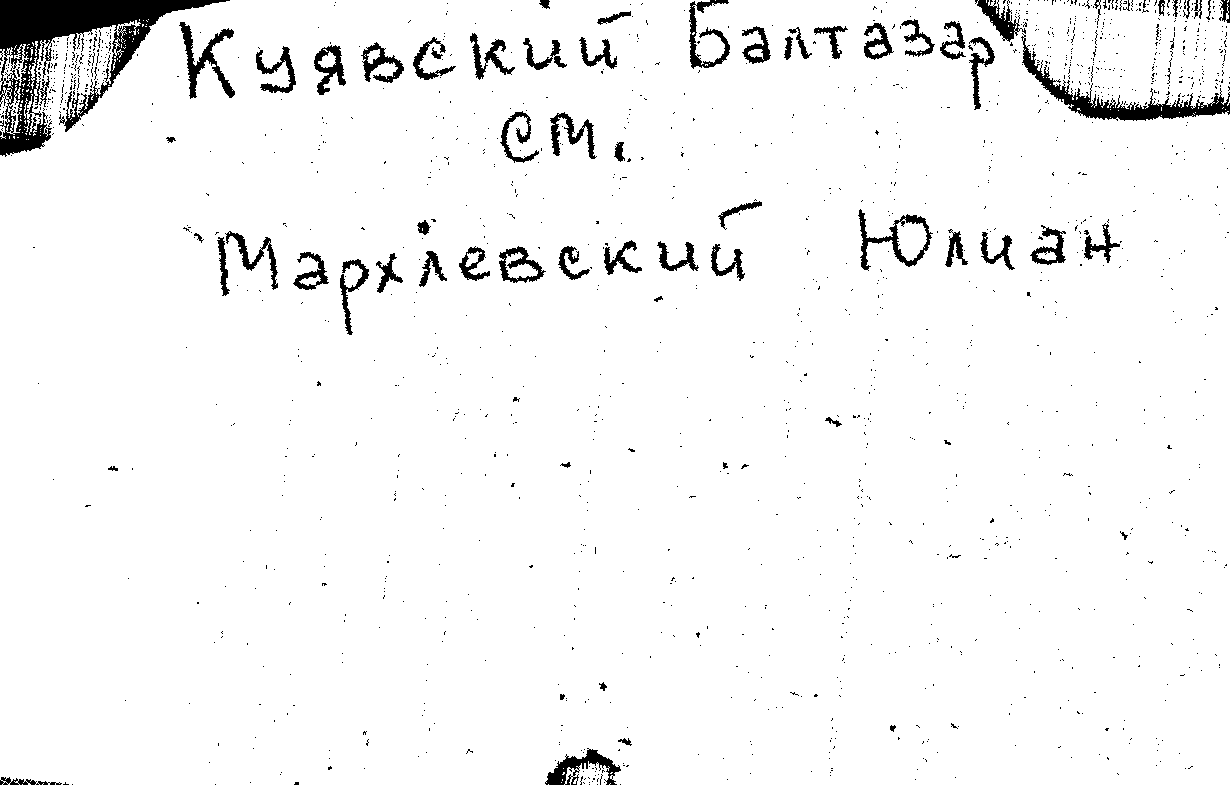 Куявский Балтазар
см.
Мархлевский Юлиан